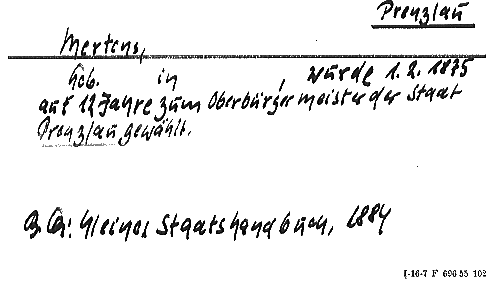 Prenzlau
Mertens,
geb. in , wurde 1.2.1875
auf 12 Jahre zum Oberbürgermeister der Stadt
Prenzlau gewählt.
Kleines Staatshandbuch, 1884
I-16-7 F 696 55 102